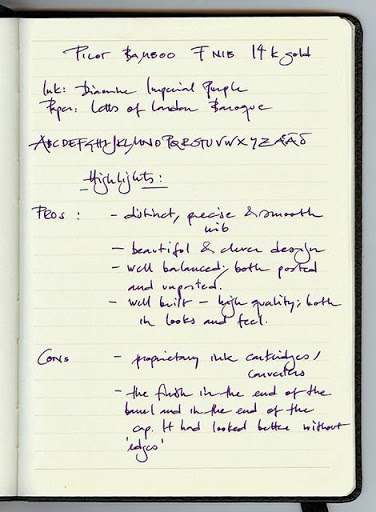 Pilot Bamboo F nib 14k gold
Ink: Diamine Imperial Purple
Paper: Letts of London Baroque
ABCDEFGHIJKLMNOPQRSTUVWXYZÆÅÖ
Highlights:
Pros: - distinct, precise & smooth
nib
- beautiful & clever design
- well balanced; both posted
and unposted.
- well built - high quality; both
in looks and feel.
Cons - proprietary ink cartridges/
converters
- the finish in the end of the
barrel and in the end of the
cap. It had looked better without
'edges'